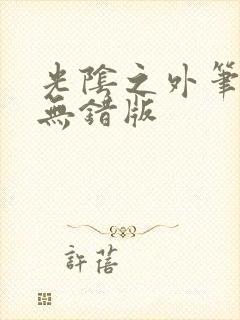 光陰之外筆
無錯版
許蓓